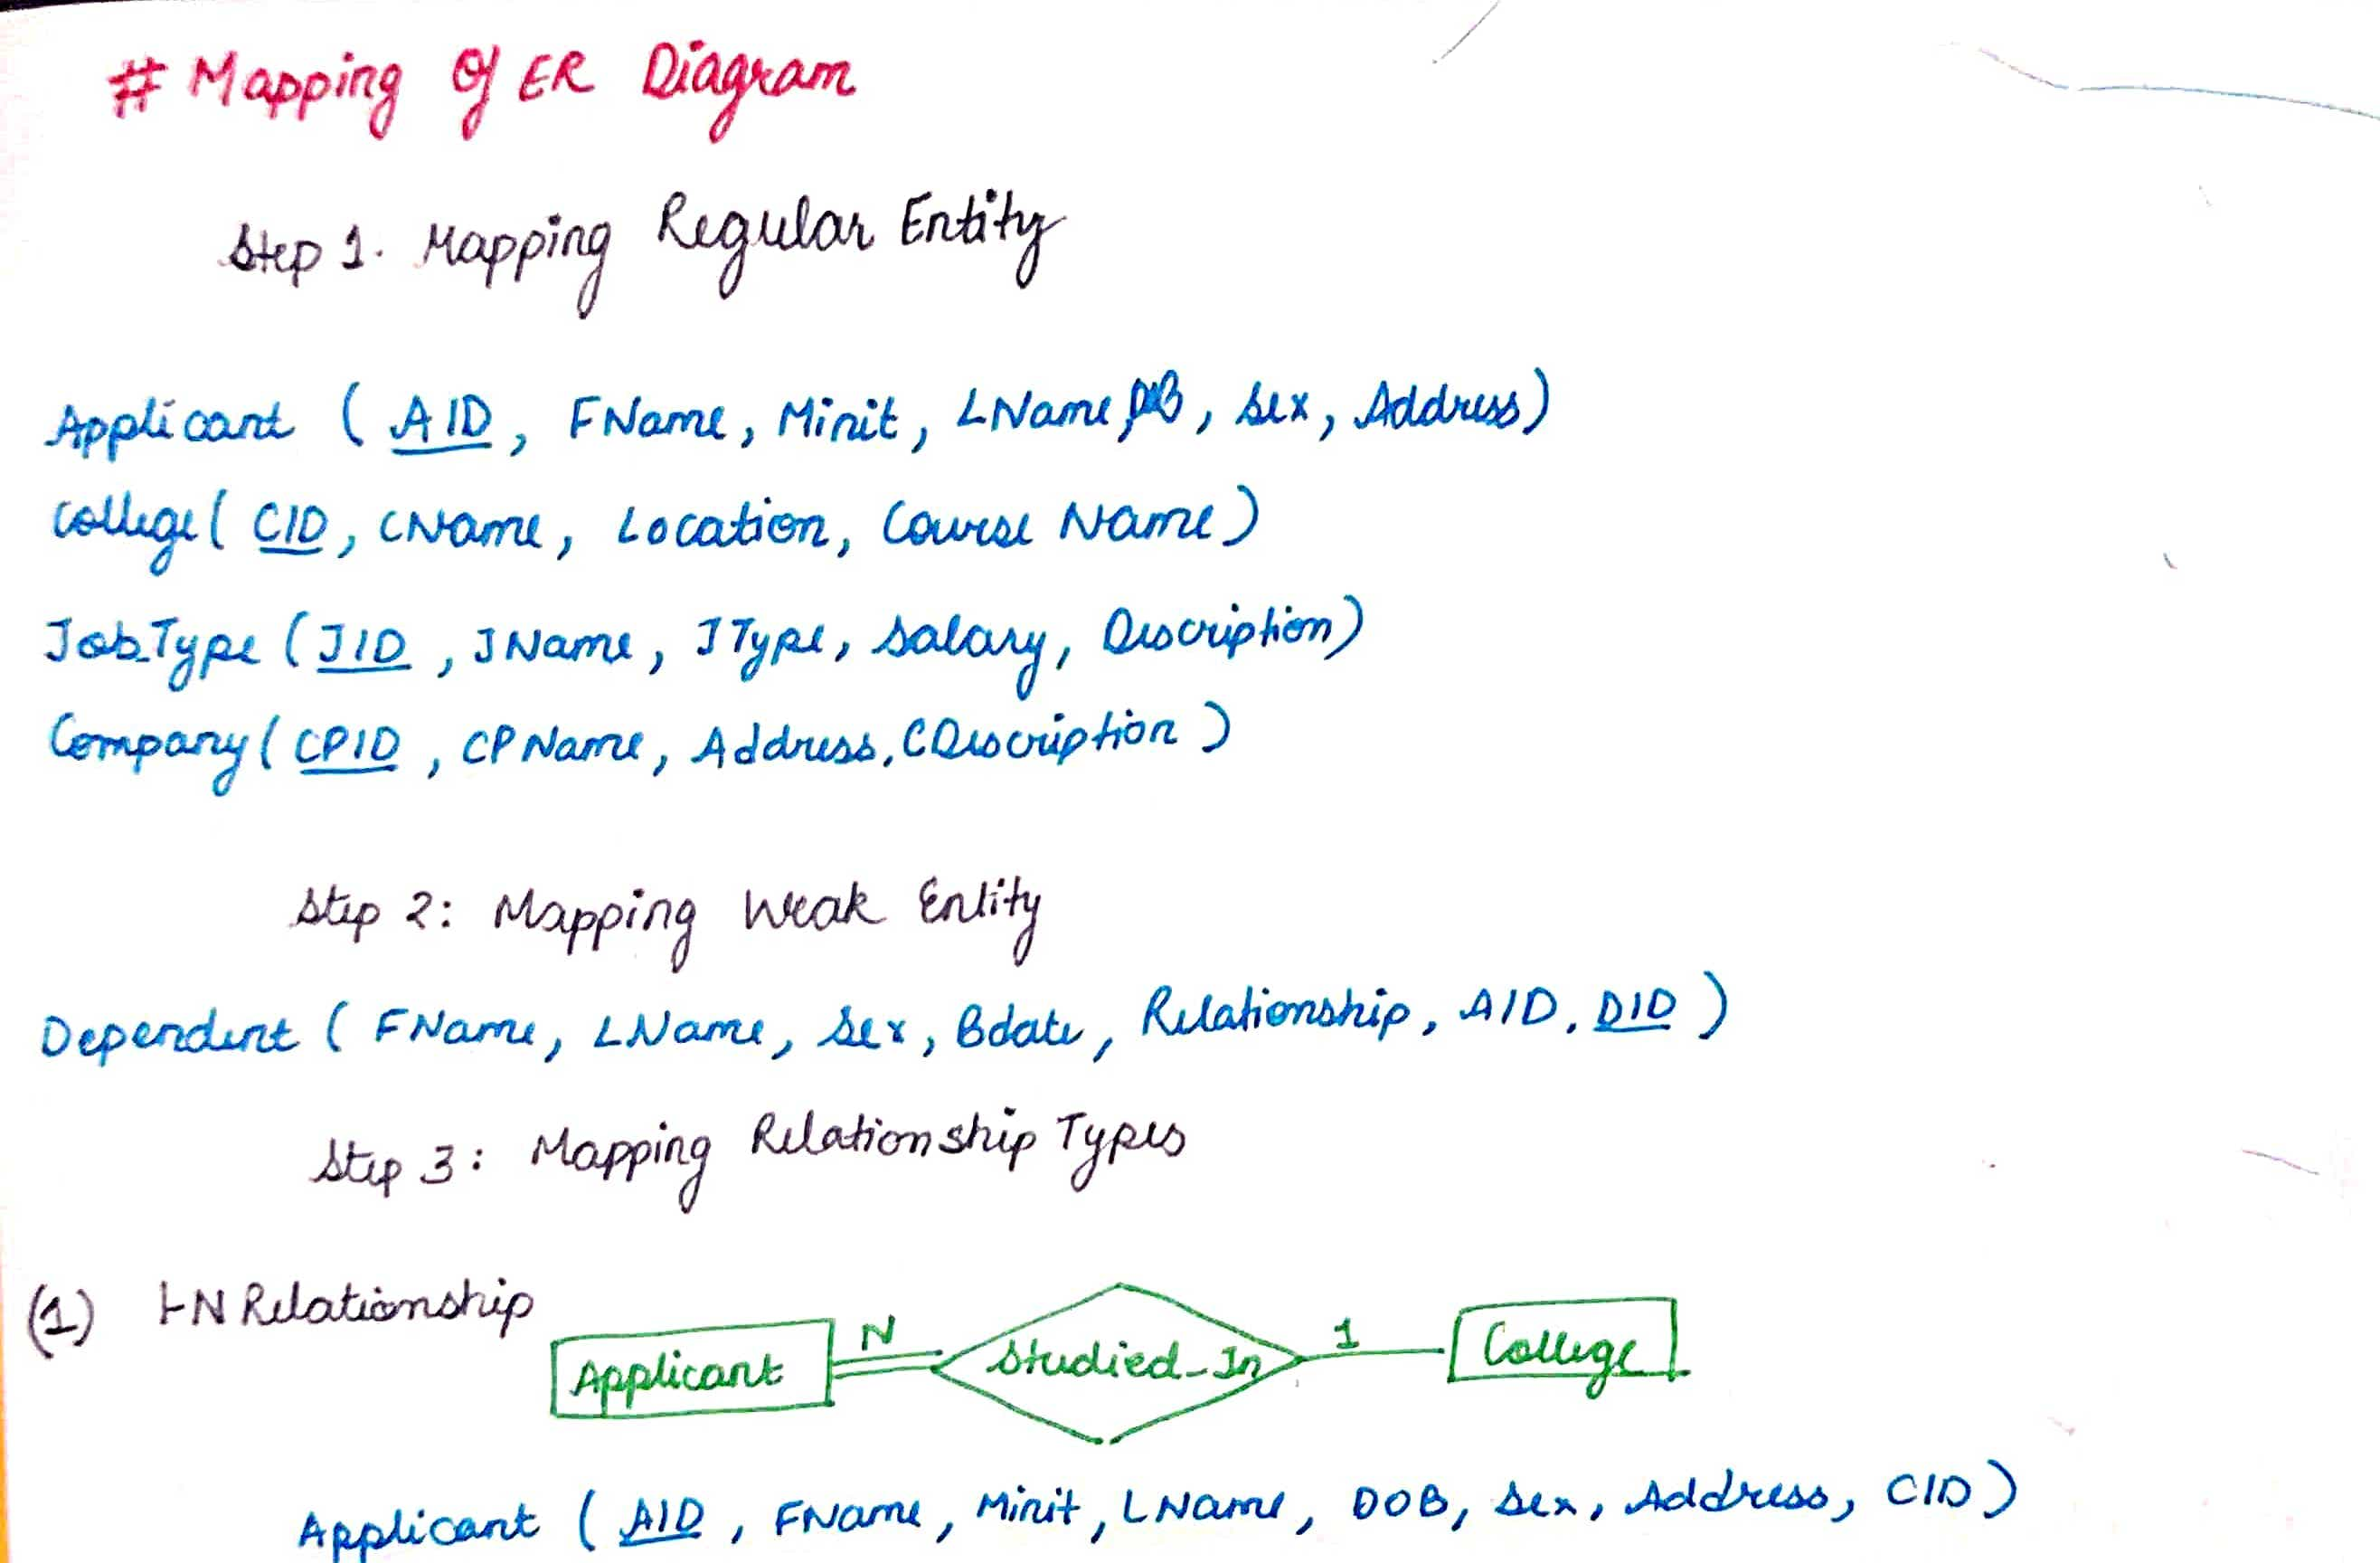 # Mapping Of ER Diagram
Step 1. Mapping Regular Entity
Applicant ( AID, FName, Minit, LName, DOB, Sex, Address)
College( CID, CName, Location, Course Name)
Job_Type (JID, JName, JType, Salary, Description)
Company( CPID, CPName, Address, CDescription )
Step 2: Mapping Weak Entity
Dependent ( FName, LName, Sex, Bdate, Relationship, AID, DID )
Step 3: Mapping Relationship Types
(1) 1-N Relationship
Applicant N Studied_In 1 College
Applicant ( AID, FName, Minit, LName, DOB, Sex, Address, CID )